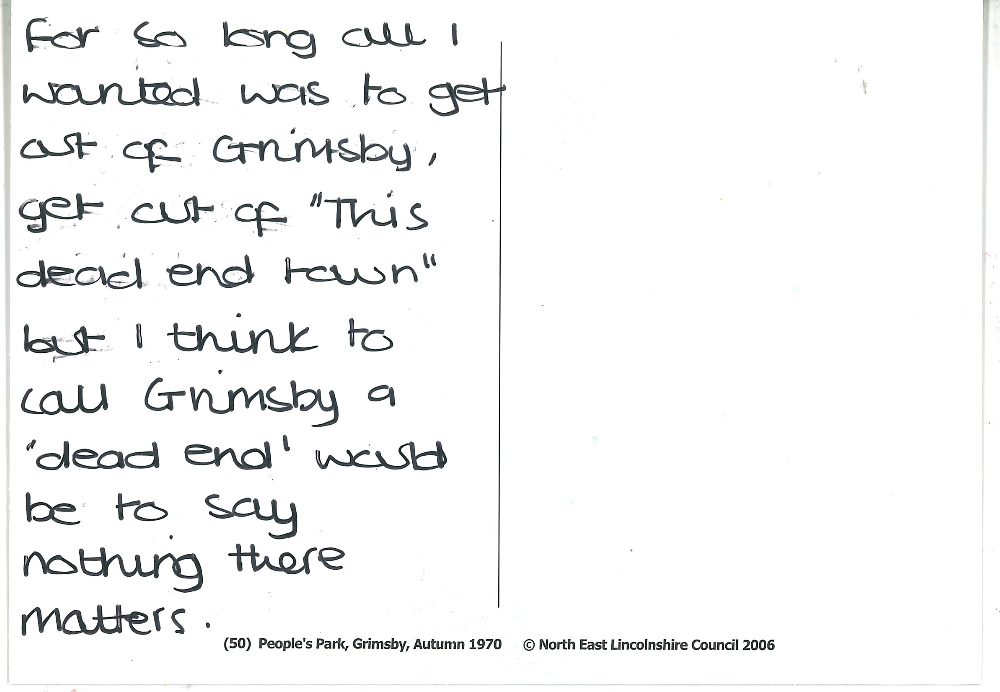 For so long all I
wanted was to get
out of Grimsby,
get out of "This
dead end town"
but I think to
call Grimsby a
'dead end' would
be to say
nothing there
matters.
(50) People's Park, Grimsby, Autumn 1970 © North East Lincolnshire Council 2006